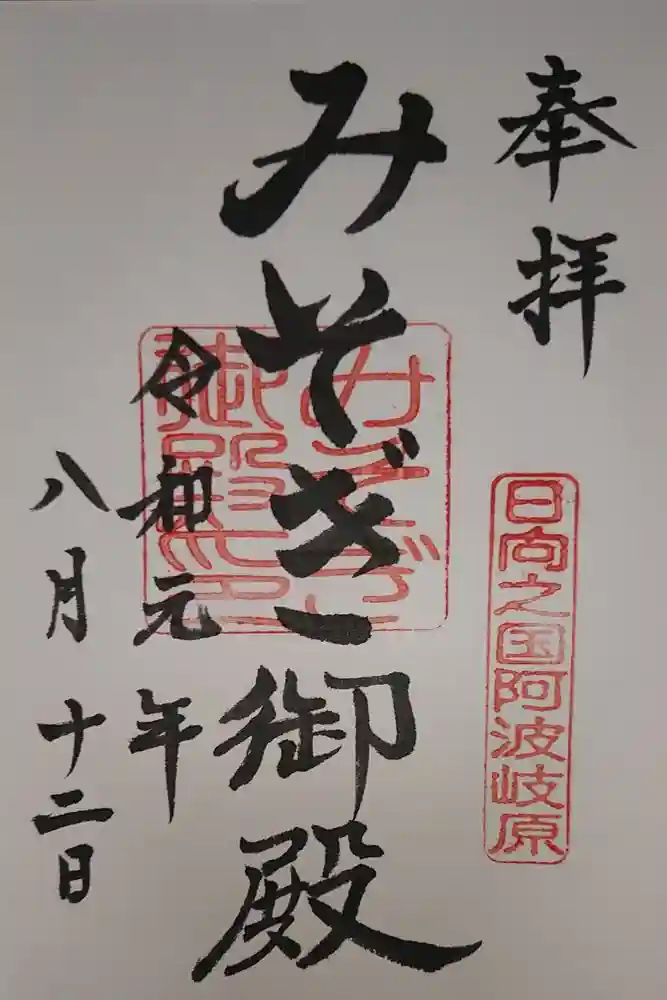 奉拝
日向之国阿波岐原
みそぎ御殿
みそぎ
御殿之印
令和元年
八月十二日